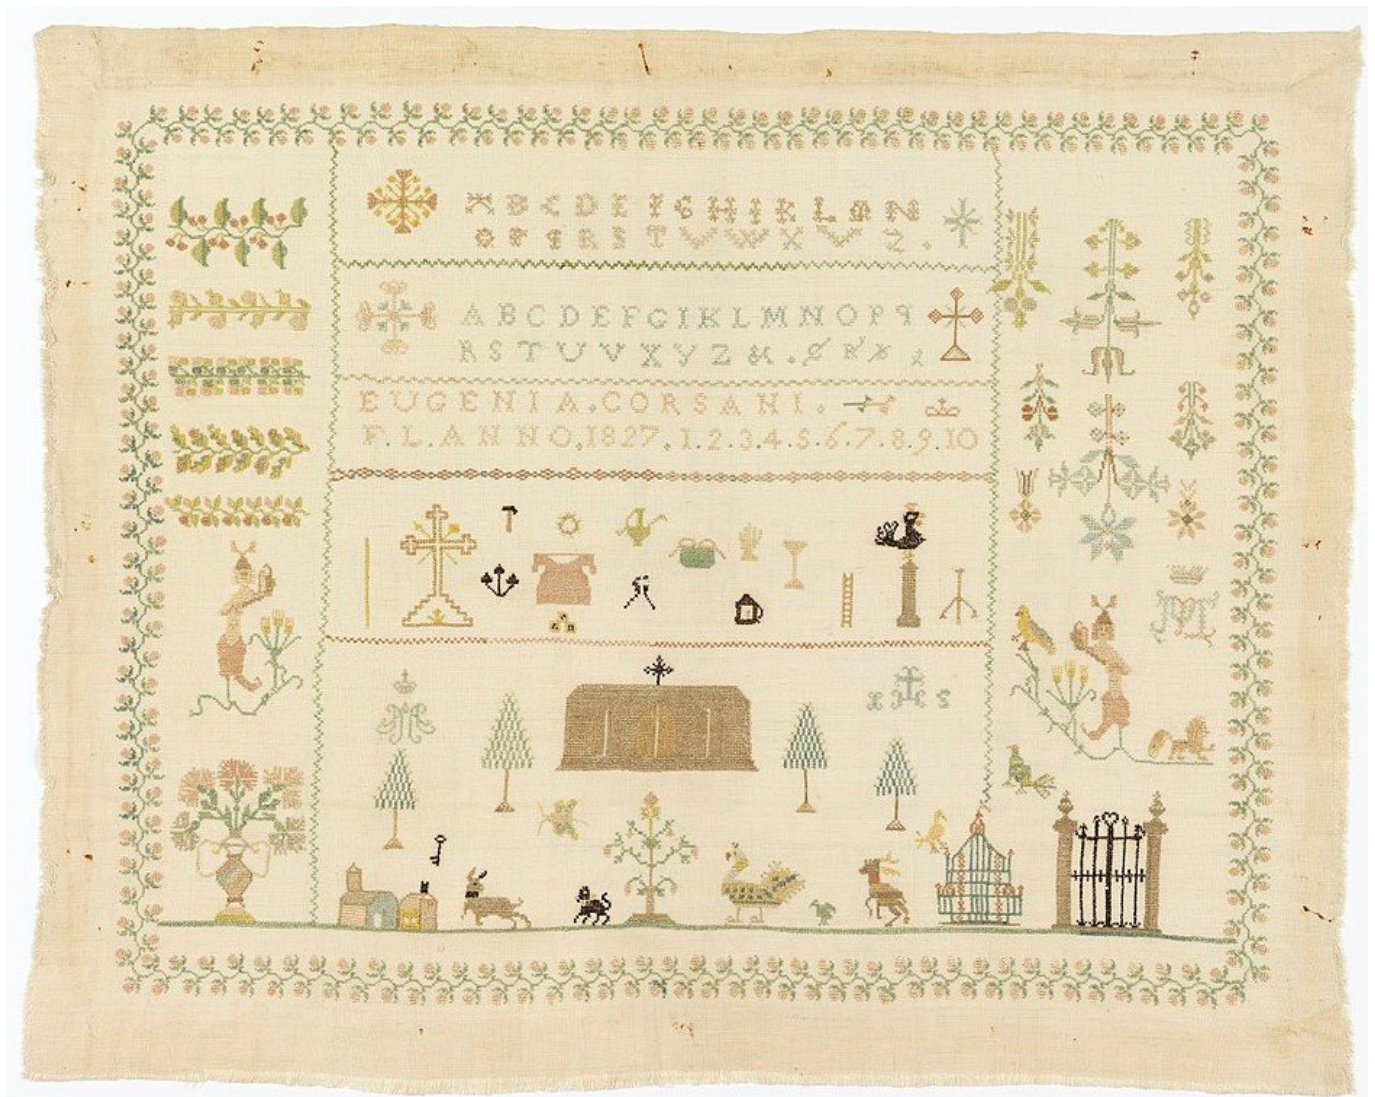 A B C D E F G H I K L M N
O P Q R S T V W X Y Z .
A B C D E F G I K L M N O P q
R S T U V X Y Z & .
EUGENIA.CORSANI.
F.L.ANNO.1827.1.2.3.4.5.6.7.8.9.10
M
M
I H S